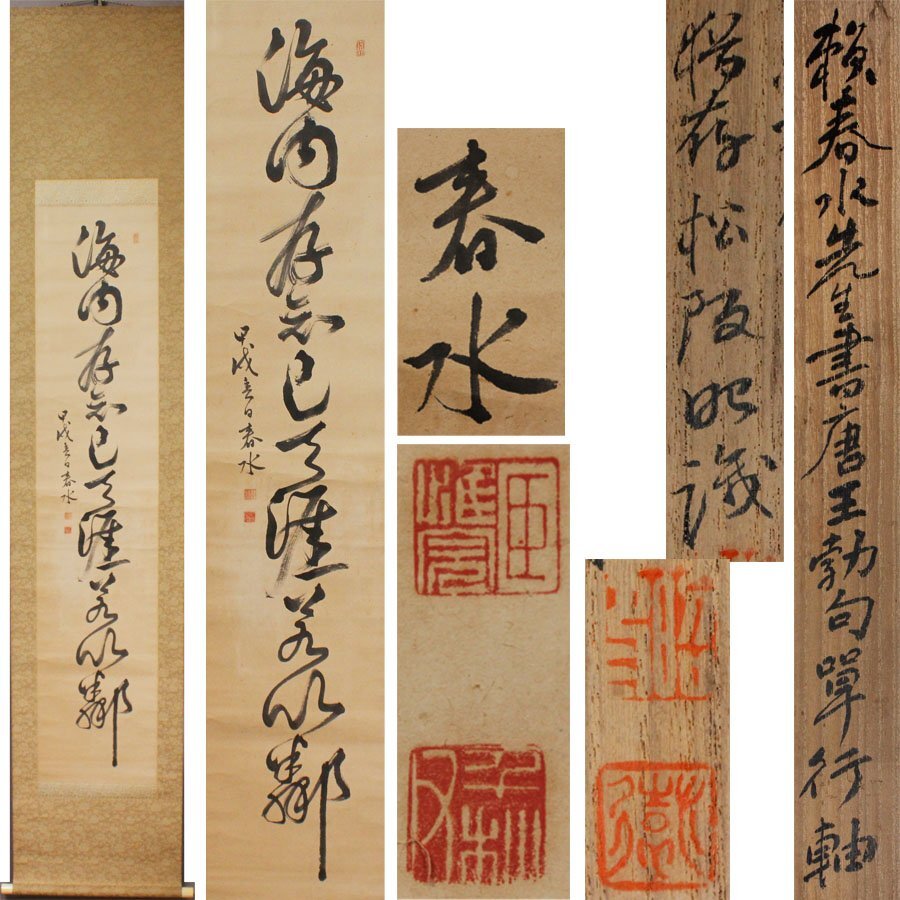 海内存知己天涯若比鄰
甲戌春日春水
海内存知己天涯若比鄰
甲戌春日春水
春水
存松阪昭識
賴春水先生書唐王勃句單行軸